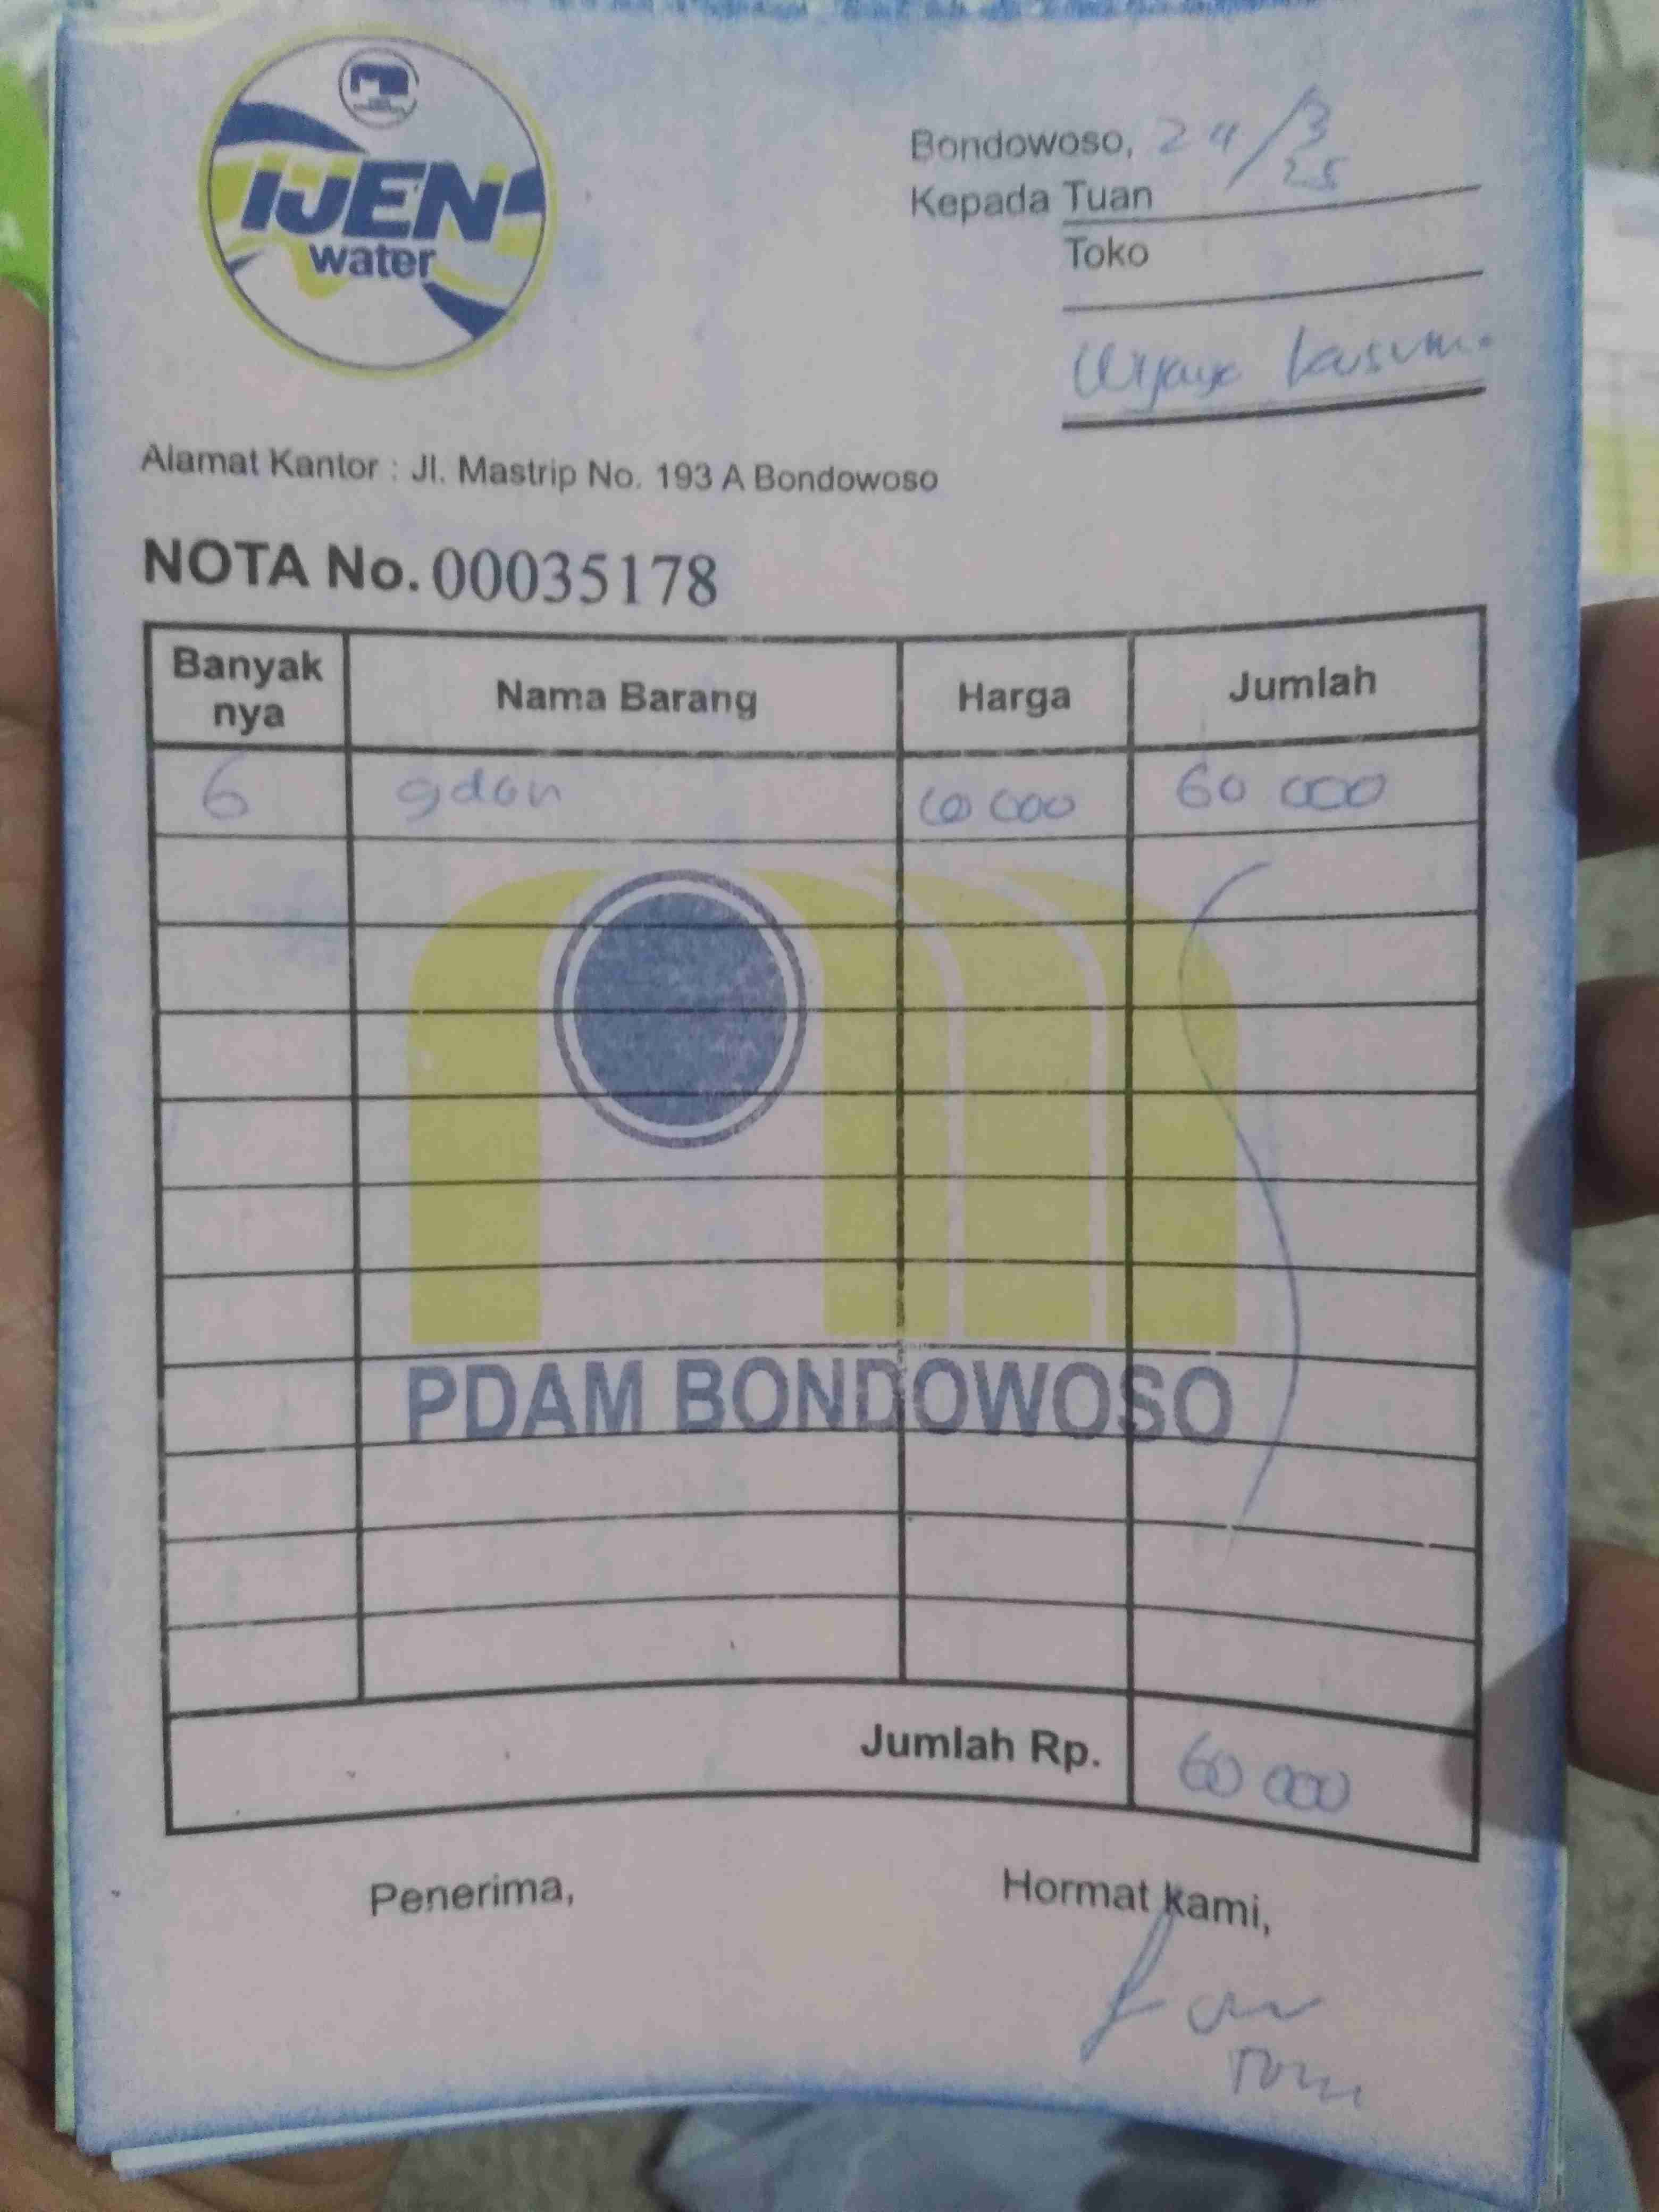 IJEN
water
Bondowoso, 24/3
25
Kepada Tuan
Toko
Wijaya kusuma
Alamat Kantor : Jl. Mastrip No. 193 A Bondowoso
NOTA No. 00035178
Banyak nya Nama Barang Harga Jumlah
6 gdon 10 000 60 000
PDAM BONDOWOSO
Jumlah Rp. 60 000
Penerima, Hormat kami,